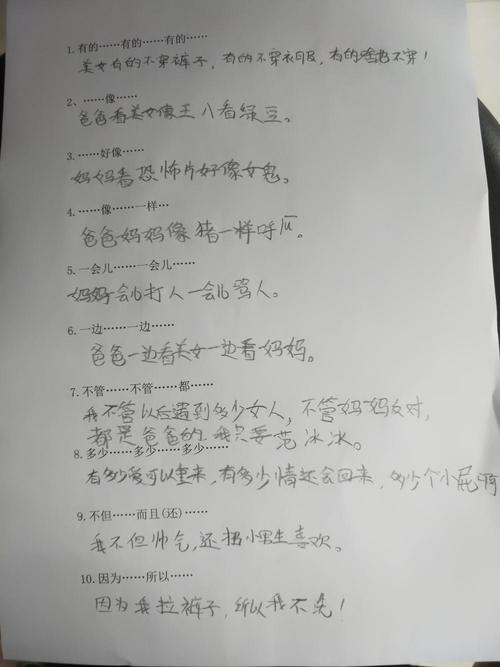 1.有的……有的……有的……
美女有的不穿裤子，有的不穿衣服，有的啥也不穿！
2、……像……
爸爸看美女像王八看绿豆。
3.……好像……
妈妈看恐怖片好像女鬼。
4.……像……一样…
爸爸妈妈像猪一样呼瓜。
5.一会儿……一会儿……
妈妈一会儿打人一会儿骂人。
6.一边……一边……
爸爸一边看美女一边看妈妈。
7.不管……不管……都……
我不管以后遇到多少女人，不管妈妈反对，
都是爸爸的.我只要范冰冰。
8.多少……多少……多少……
有多少爱可以重来，有多少情还会回来，多少个小屁
9.不但……而且(还)……
我不但帅气，还招小男生喜欢。
10.因为……所以……
因为我拉裤子，所以我不